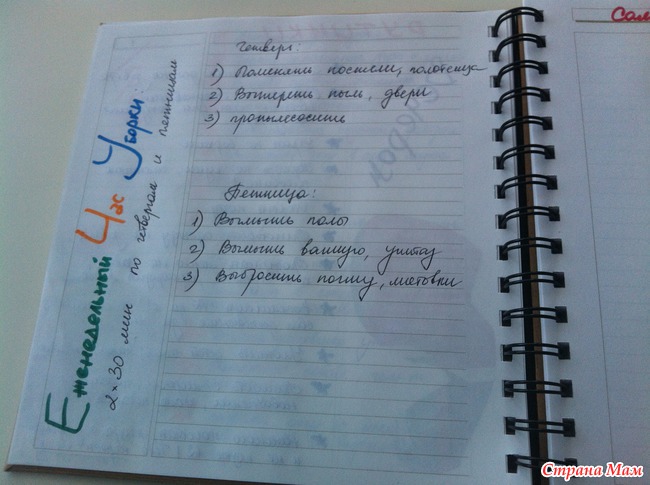 Еженедельный Час Уборки:
2 × 30 мин по четвергам и пятницам
Четверг:
1) Поменять постели, полотенца
2) Вытереть пыль, двери
3) пропылесосить
Пятница:
1) Вымыть полы
2) Вымыть ванную, унитаз
3) Выбросить почту, листовки
Сам
Страна Мам